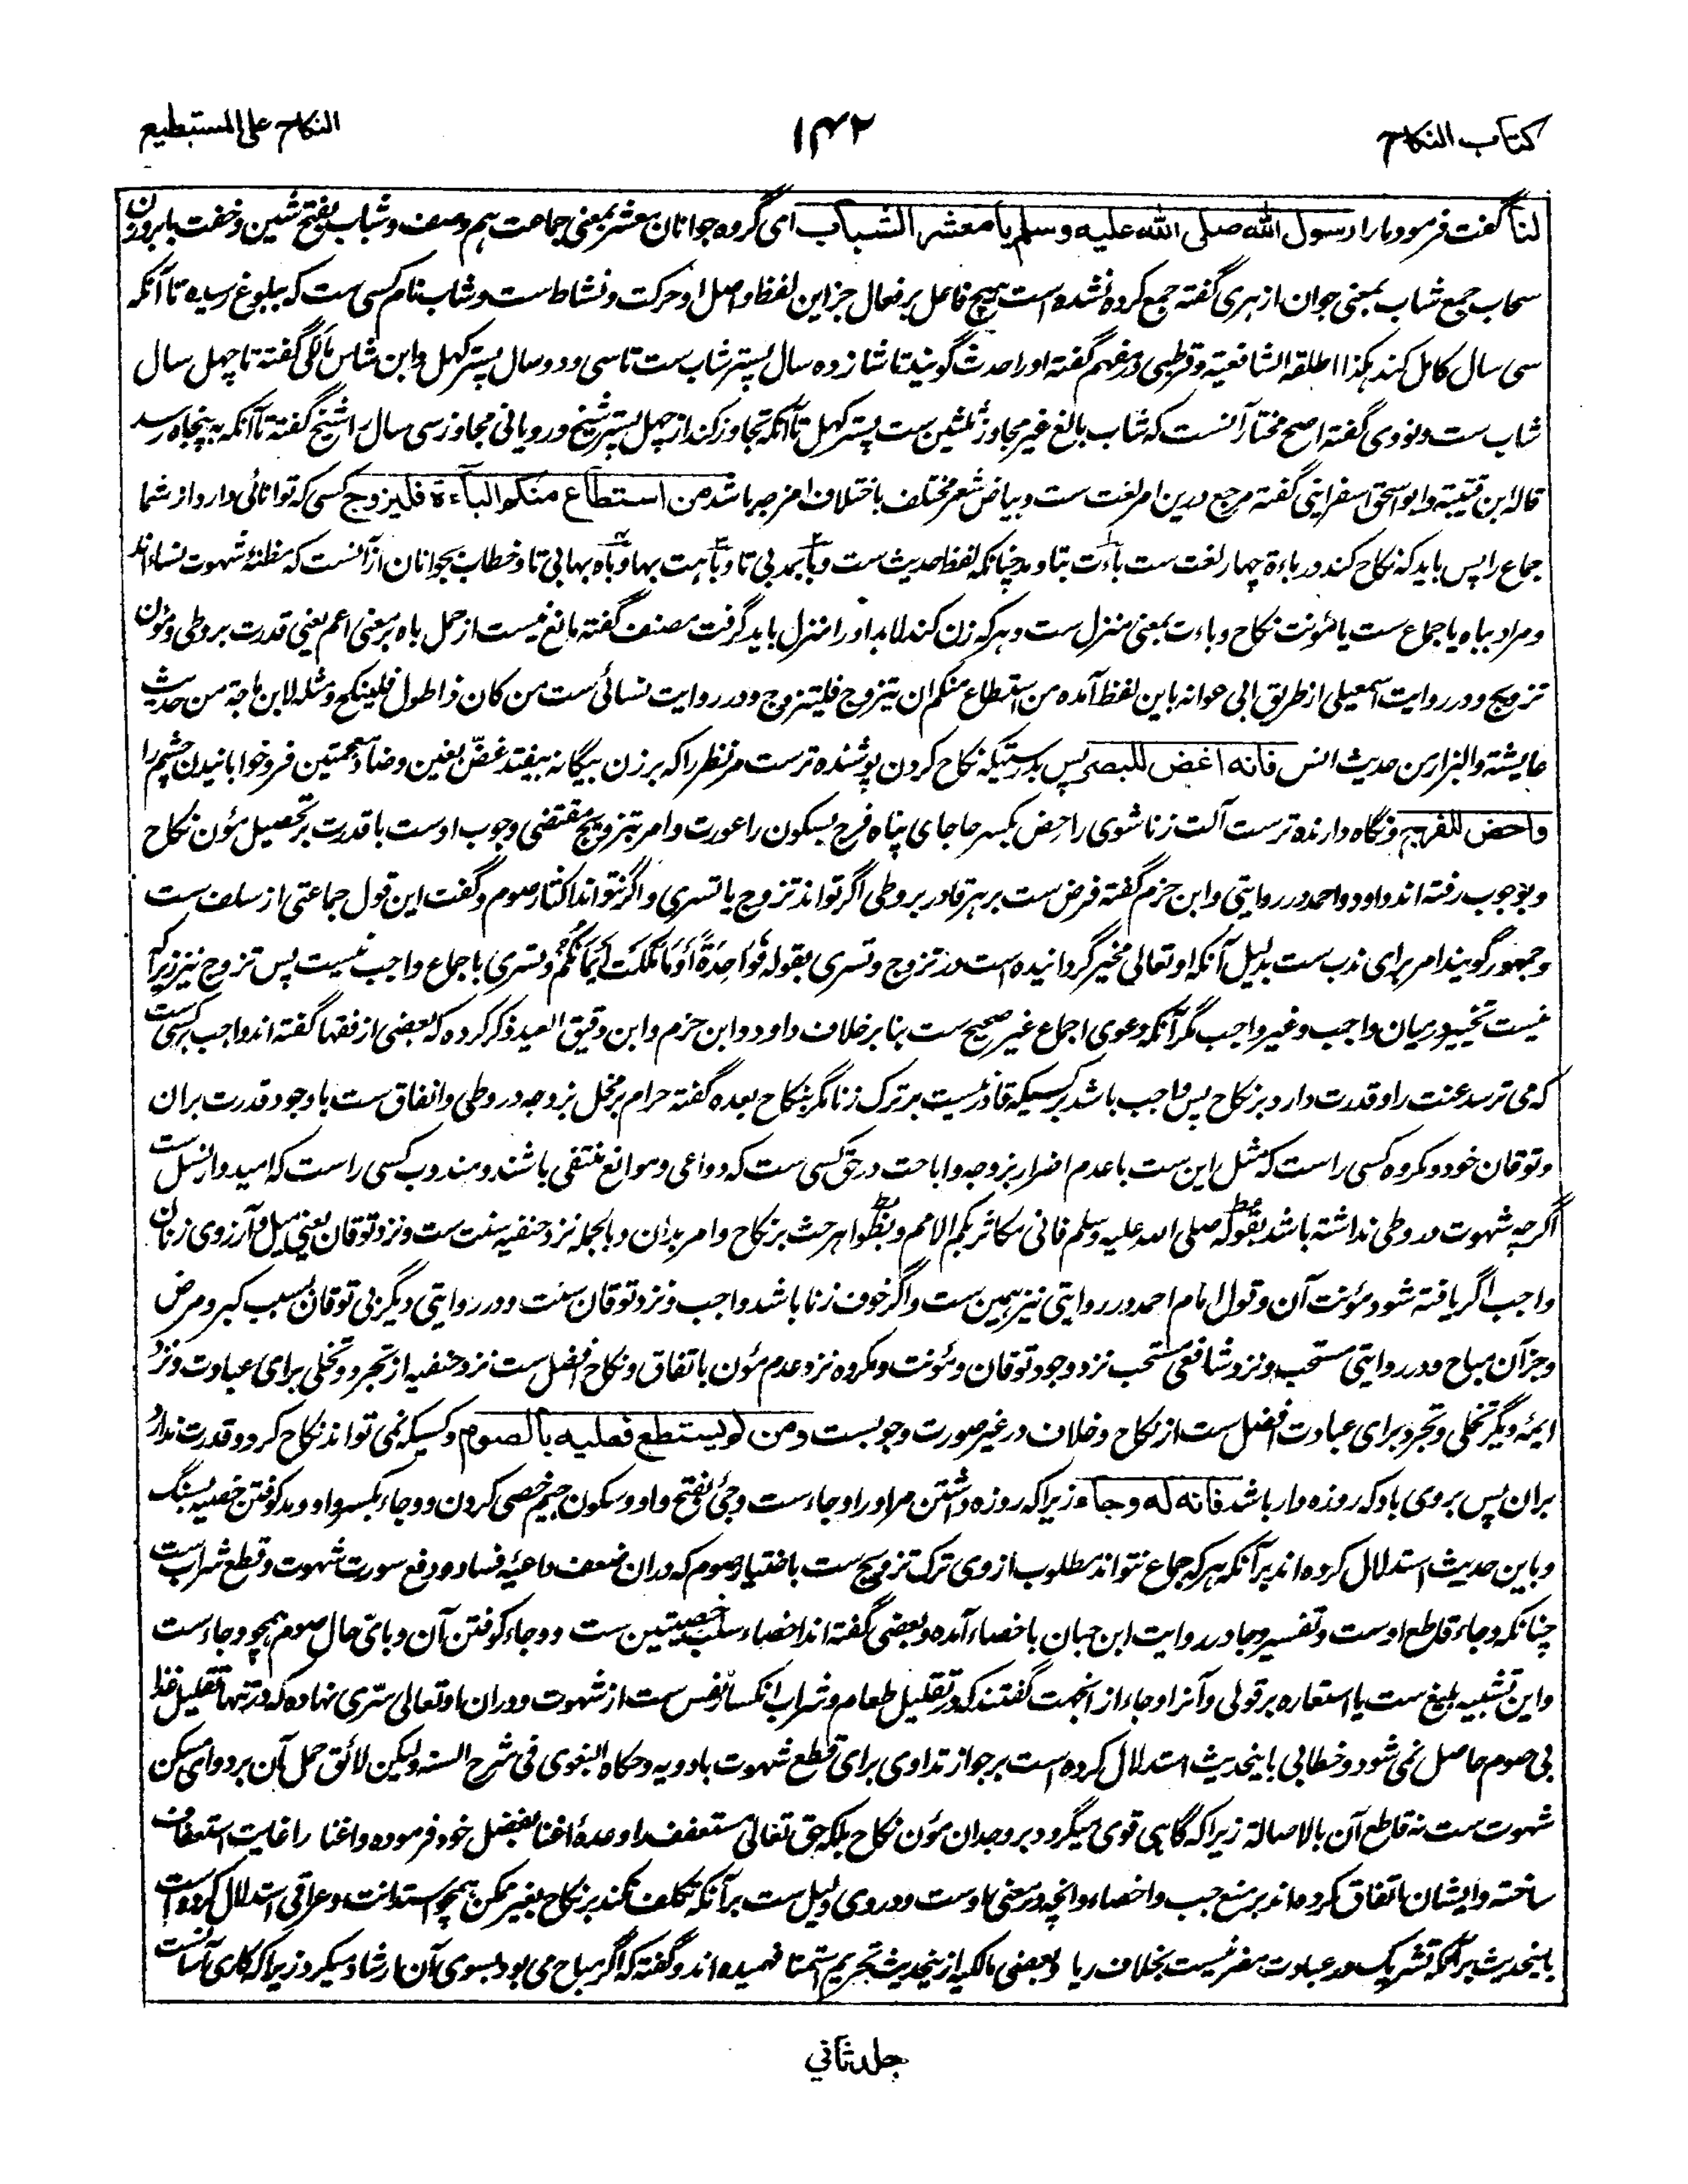 كتاب النكاح
۱۴۲
النكاح على المستطيع
لنا گفت فرمود مارا رسول الله صلى الله عليه وسلم يا معشر الشباب ای گروه جوانان معشر بمعنی جماعت هم وصف و شباب بفتح شین و خفت با بروزن
سحاب جمع شاب بمعنی جوان ازهری گفته جمع کرده نشده است هیچ فاعل بر فعال جز این لفظ و اصل او حرکت و نشاط ست و شاب نام کسی ست که ببلوغ رسیده تا آنکه
سی سال کامل کند هکذا اطلقه الشافعیة و قرطبی در مفهم گفته او را حدث گویند تا شانزده سال پستر شاب ست تا سی و دو سال پستر کهل و ابن شاس مالکی گفته تا چهل سال
شاب ست و نووی گفته اصح مختار آنست که شاب بالغ غیر مجاوز ثلثین ست پستر کهل تا آنکه تجاوز کند از چهل پستر شیخ و رویانی مجاوز سی سال را شیخ گفته تا آنکه به پنجاه رسد
قاله ابن قتیبة و ابو اسحق اسفراینی گفته مرجع درین امر لغت ست و بیاض شعر مختلف باختلاف امزجه باشد من استطاع منكم الباءة فليزوج کسی که توانائی دارد از شما
جماع را پس باید که نکاح کند در باءة چهار لغت ست باءت بتا و مد چنانکه لفظ حدیث ست و با بمد بی تا و باهت بها و باه بها بی تا و خطاب بجوانان از آنست که مظنهٔ شهوت نساء اند
و مراد بباه یا جماع ست یا مؤنت نکاح و باءت بمعنی منزل ست و هر که زن کند لابد او را منزل باید گرفت مصنف گفته مانع نیست از حمل باه بر معنی اعم یعنی قدرت بر وطی و مؤن
تزویج و در روایت اسمعیلی از طریق ابی عوانه باین لفظ آمده من استطاع منکم ان یتزوج فلیتزوج و در روایت نسائی ست من کان ذا طول فلینکح و مثله لابن ماجة من حدیث
عایشة و البزار من حدیث انس فانه اغض للبصر پس بدرستیکه نکاح کردن پوشنده ترست مر نظر را که بر زن بیگانه بیفتد غض بغین و ضاد معجمتین فرو خوابانیدن چشم را
واحصن للفرج و نگاه دارنده ترست آلت زناشوی را حصن بکسر حا جای پناه فرج بسکون را عورت و امر بتزویج مقتضی وجوب اوست با قدرت بر تحصیل مؤن نکاح
و بوجوب رفته اند داود و احمد در روایتی و ابن حزم گفته فرض ست بر هر قادر بر وطی اگر تواند تزوج یا تسری و اگر نتواند اکثار صوم و گفت این قول جماعتی از سلف ست
و جمهور گویند امر برای ندب ست بدلیل آنکه او تعالی مخیر گردانیده است در تزوج و تسری بقوله فَوَاحِدَةً أَوْ مَا مَلَكَتْ أَيْمَانُكُمْ و تسری باجماع واجب نیست پس تزوج نیز زیرا که
نیست تخییر درمیان واجب و غیر واجب مگر آنکه دعوی اجماع غیر صحیح ست بنا بر خلاف داود و ابن حزم و ابن دقیق العید ذکر کرده که بعضی از فقها گفته اند واجب بر کسی ست
که می ترسد عنت را و قدرت دارد بر نکاح پس واجب باشد بر کسیکه قادر نیست بر ترک زنا مگر بنکاح بعده گفته حرام بر مخل بزوجه در وطی و انفاق ست با وجود قدرت بران
و توقان خود و مکروه کسی راست که مثل این ست با عدم اضرار بزوجه و اباحت در حق کسی ست که دواعی و موانع منتفی باشند و مندوب کسی را ست که امیدوار نسل ست
اگرچه شهوت در وطی نداشته باشد بقوله صلی الله علیه وسلم فانی مکاثر بکم الامم و بظواهر حث بر نکاح و امر بدان و بالجمله نزد حنفیه سنت ست و نزد توقان یعنی میل و آرزوی زنان
واجب اگر یافته شود مؤنت آن و قول امام احمد در روایتی نیز همین ست و اگر خوف زنا باشد واجب و نزد توقان سنت و در روایتی دیگر بی توقان بسبب کبر و مرض
و جز آن مباح و در روایتی مستحب و نزد شافعی مستحب نزد وجود توقان و مؤنت و مکروه نزد عدم مؤن باتفاق و نکاح افضل ست نزد حنفیه از تجرد و تخلی برای عبادت و نزد
ایمهٔ دیگر تخلی و تجرد برای عبادت افضل ست از نکاح و خلاف در غیر صورت وجوبست ومن لم يستطع فعليه بالصوم و کسیکه نمی تواند نکاح کرد و قدرت ندارد
بران پس بروی باد که روزه دار باشد فانه له وجاء زیرا که روزه داشتن مر او را وجاء ست وجئ بفتح واو و سکون جیم خصی کردن و وجاء بکسر واو و مد کوفتن خصیه بسنگ
و باین حدیث استدلال کرده اند بر آنکه هر که جماع نتواند مطلوب از وی ترک تزویج ست باختیار صوم که دران ضعف داعیهٔ فساد و دفع سورت شهوت و قطع شراب ست
چنانکه وجاء قاطع اوست و تفسیر وجا در روایت ابن حبان باخصاء آمده و بعضی گفته اند اخصاء سلب خصیتین ست و وجاء کوفتن آن و بای حال صوم همچو وجاء ست
و این تشبیه بلیغ ست یا استعاره بر قولی و آنرا وجاء از انجهت گفتند که در تقلیل طعام و شراب انکسار نفس ست از شهوت و دران او تعالی سری نهاده که در تنها تقلیل غذا
بی صوم حاصل نمی شود و خطابی باینحدیث استدلال کرده است بر جواز تداوی برای قطع شهوت بادویه و حکاه البغوی فی شرح السنه ولیکن لائق حمل آن بر دوای مسکن
شهوت ست نه قاطع آن بالاصالة زیرا که گاهی قوی میگردد بر وجدان مؤن نکاح بلکه حق تعالی مستعفف را وعدهٔ اغنا بفضل خود فرموده و اغنا را غایت استعفاف
ساخته و ایشان اتفاق کرده اند بر منع جب و اخصاء و آنچه در معنی اوست و در وی دلیل ست بر آنکه تکلف نکند بر نکاح بغیر ممکن همچو استدانت و عراقی استدلال کرده است
باینحدیث بر آنکه تشریک در عبادت مضر نیست بخلاف ریا و بعضی مالکیه ازینحدیث تحریم استمنا فهمیده اند و گفته که اگر مباح می بود بسوی آن ارشاد میکرد زیرا که کاری آسانست
جلد ثاني